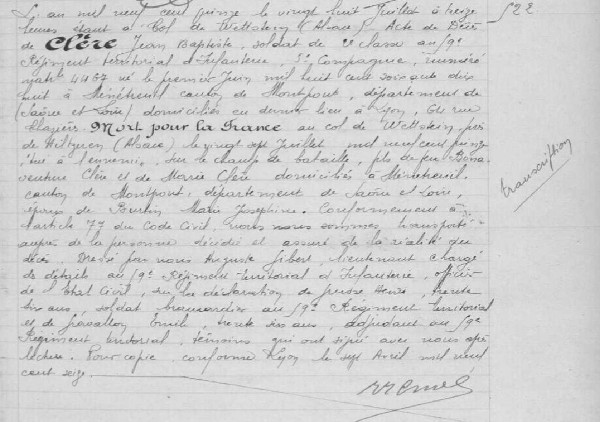 L'an mil neuf cent quinze le vingt huit Juillet à treize
heures étant à Col de Wettstein (Alsace). Acte de Décès
de Clère Jean Baptiste, soldat de 2e classe au 59e
Régiment territorial d'Infanterie, 5e Compagnie, numéro
matle 4467 né le premier Juin mil huit cent soixante dix
huit à Ménetreuil canton de Montpont, département de
(Saône et Loire) domicilié en dernier lieu à Lyon, 61 rue
Mort pour la France au col de Wettstein, près
de (Alsace) le vingt sept Juillet mil neuf cent quinze
tué à l'ennemi, sur le champ de bataille, fils de feu Bona-
venture Clère et de Marie Clère domiciliés à Ménetreuil
canton de Montpont, département de Saône et Loire,
époux de Marie Joséphine. Conformément à
l'article 77 du Code Civil, nous nous sommes transporté
auprès de la personne décédée et assuré de la réalité du
décès. Dressé par nous Auguste Jibert, lieutenant chargé
de détails au 59e Régiment territorial d'Infanterie, officier
de l'Etat Civil, sur la déclaration de Henri, trente
six ans, soldat brancardier au 59e Régiment territorial
et de Emile, trente six ans, adjudant au 59e
Régiment territorial, témoins qui ont signé avec nous après
lecture. Pour copie conforme Lyon le sept Avril mil neuf
cent seize
522
transcription